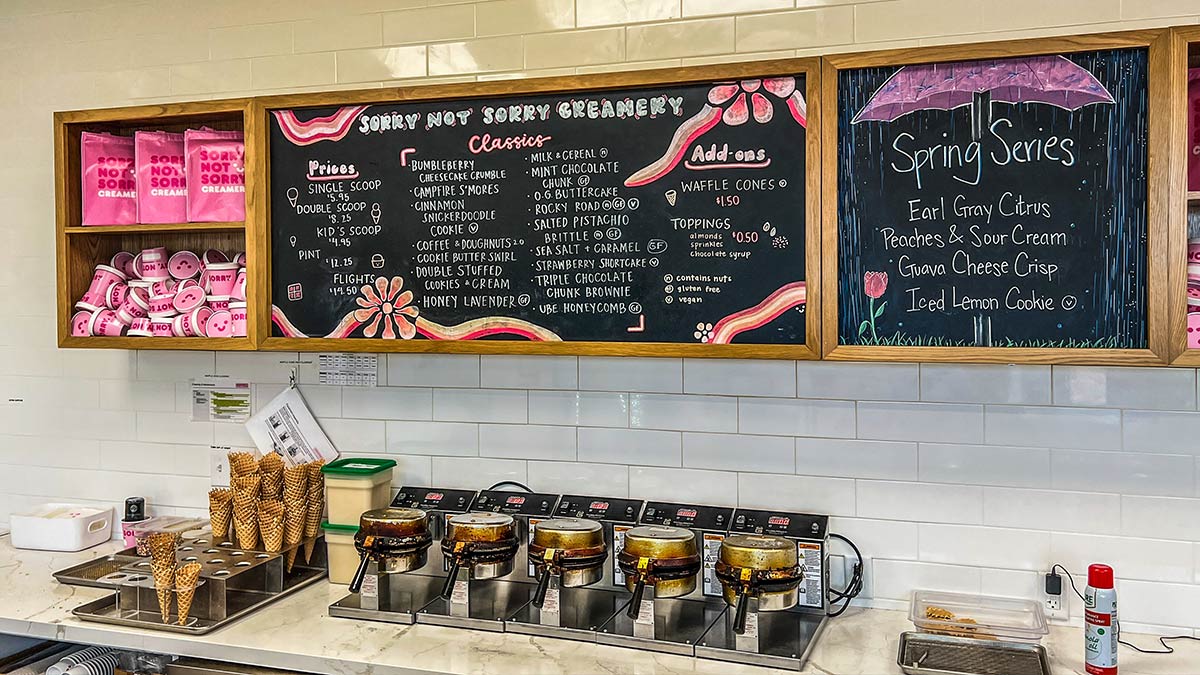 SORRY NOT SORRY CREAMERY
Classics
Prices
SINGLE SCOOP
$5.95
DOUBLE SCOOP
$8.25
KID'S SCOOP
$4.95
PINT
12.25
FLIGHTS
$14.50
· BUMBLEBERRY
CHEESECAKE CRUMBLE
· CAMPFIRE S'MORES
· CINNAMON
SNICKERDOODLE
COOKIE V
· COFFEE & DOUGHNUTS 2.0
· COOKIE BUTTER SWIRL
· DOUBLE STUFFED
COOKIES & CREAM
· HONEY LAVENDER GF
· MILK & CEREAL N
· MINT CHOCOLATE
CHUNK GF
· O.G BUTTERCAKE
· ROCKY ROAD N GF V
· SALTED PISTACHIO
BRITTLE N GF
· SEA SALT & CARAMEL GF
· STRAWBERRY SHORTCAKE V
· TRIPLE CHOCOLATE
CHUNK BROWNIE
· UBE HONEYCOMB GF
Add-ons
WAFFLE CONES V
$1.50
TOPPINGS
almonds
sprinkles
chocolate syrup
$0.50
N contains nuts
GF gluten free
V vegan
Spring Series
Earl Gray Citrus
Peaches & Sour Cream
Guava Cheese Crisp
Iced Lemon Cookie V
SORRY
NOT
SORRY
CREAMERY
SORRY
NOT
SORRY
CREAMERY
SORRY
NOT
SORRY
CREAMERY